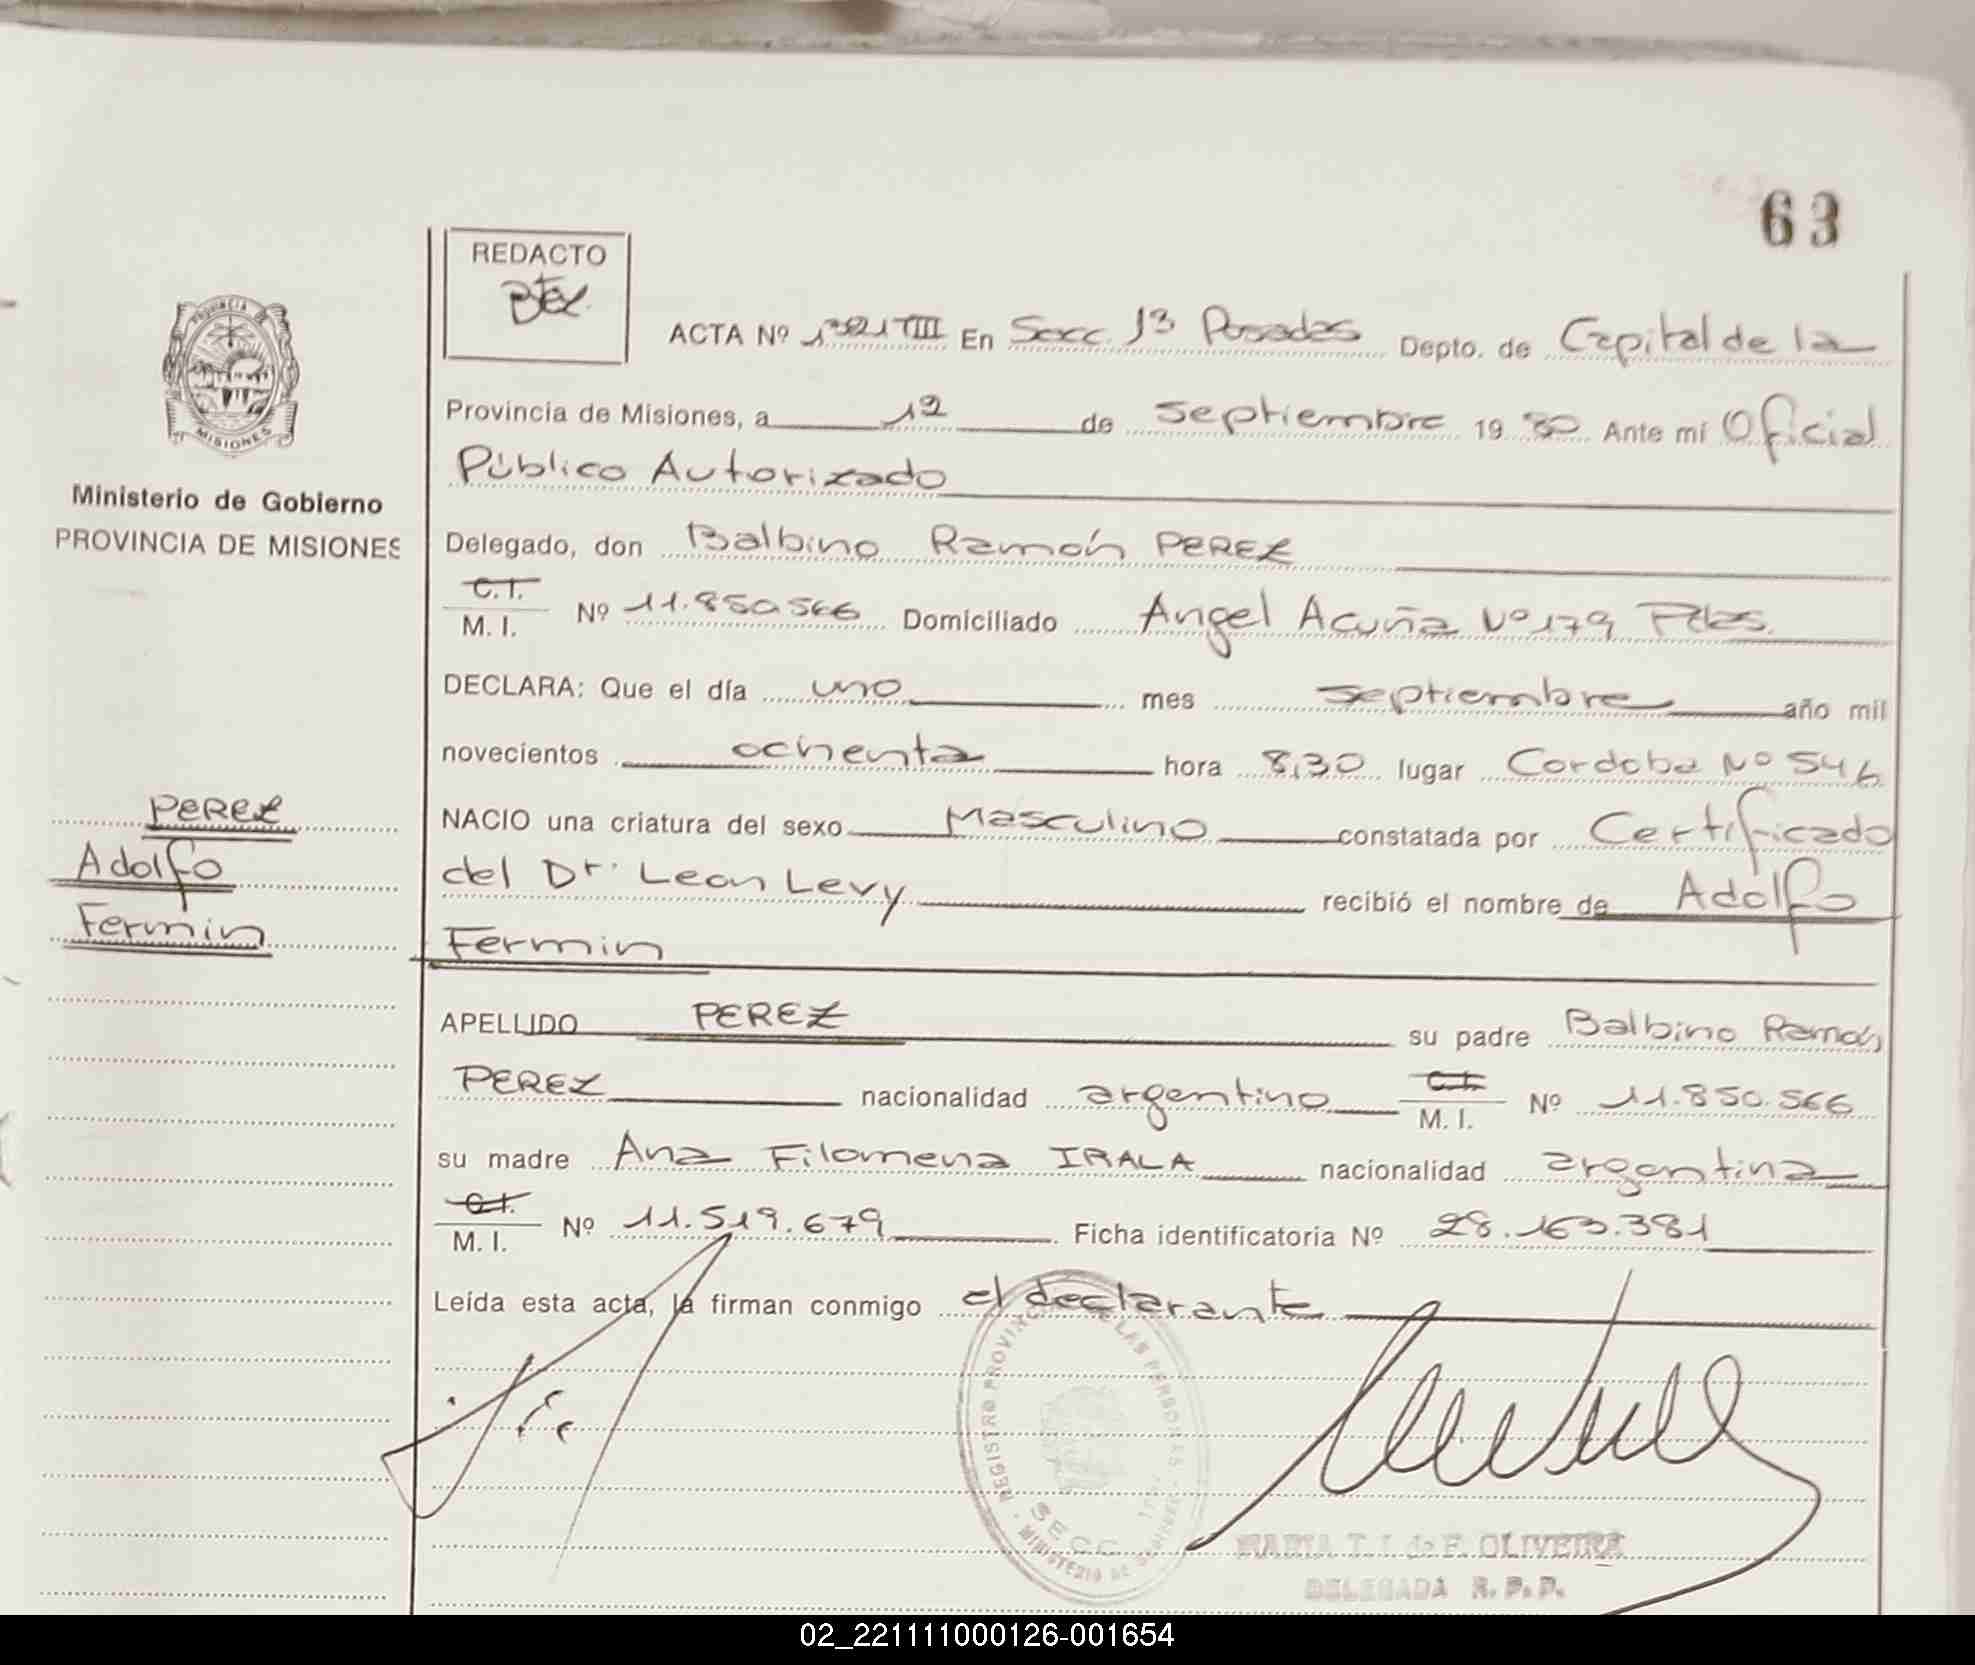 63
REDACTO
PROVINCIA DE
MISIONES
Ministerio de Gobierno
PROVINCIA DE MISIONES
ACTA Nº TIII En Secc. 1ª Posadas Depto. de Capital de la
Provincia de Misiones, a 12 de septiembre 19 80 Ante mí Oficial
Público Autorizado
Delegado, don Balbino Ramón PEREZ
C.I.
M. I. Nº 11.850.566 Domiciliado Angel Acuña Nº 179 Pdas.
DECLARA: Que el día uno mes septiembre año mil
novecientos ochenta hora 8,30 lugar Cordoba Nº 546
PEREZ
Adolfo
Fermin
NACIO una criatura del sexo Masculino constatada por Certificado
del Dr. Leon Levy recibió el nombre de Adolfo
Fermin
APELLIDO PEREZ su padre Balbino Ramón
PEREZ nacionalidad argentino C.I.
M. I. Nº 11.850.566
su madre Ana Filomena IRALA nacionalidad argentina
C.I.
M. I. Nº 11.519.679 Ficha identificatoria Nº 28.163.381
Leída esta acta, la firman conmigo el declarante
REGISTRO PROVINCIAL DE LAS PERSONAS
SECC
MINISTERIO DE
MARIA T. I. de F. OLIVEIRA
DELEGADA R. P. P.
02_221111000126-001654